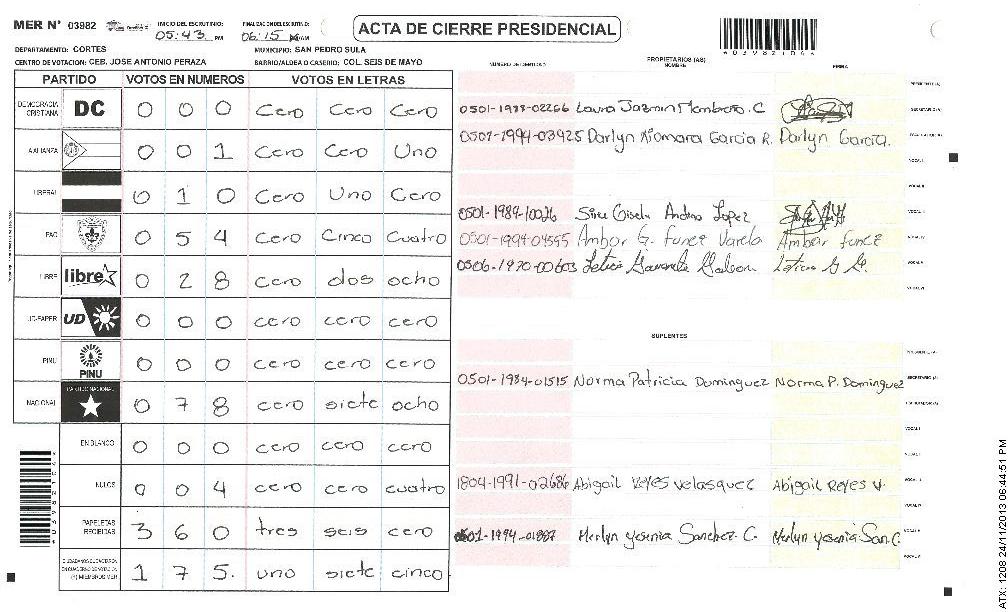 MER N° 03982
INICIO DEL ESCRUTINIO: 05:43 PM
FINALIZACION DEL ESCRUTINIO: 06:15
ACTA DE CIERRE PRESIDENCIAL
DEPARTAMENTO: CORTES
MUNICIPIO: SAN PEDRO SULA
CENTRO DE VOTACION: CEB. JOSE ANTONIO PERAZA
BARRIO/ALDEA O CASERIO: COL. SEIS DE MAYO
PARTIDO VOTOS EN NUMEROS VOTOS EN LETRAS
DEMOCRACIA CRISTIANA DC 0 0 0 Cero Cero Cero
ALIANZA 0 0 1 Cero Cero Uno
LIBERAL 0 1 0 Cero Uno Cero
PAC 0 5 4 Cero Cinco Cuatro
LIBRE libre 0 2 8 Cero dos ocho
UD-FAPER UD 0 0 0 cero cero cero
PINU PINU 0 0 0 cero cero cero
NACIONAL PARTIDO NACIONAL 0 7 8 cero siete ocho
EN BLANCO 0 0 0 cero cero cero
NULOS 0 0 4 cero cero cuatro
PAPELETAS RECIBIDAS 3 6 0 tres seis cero
1 7 5. uno siete cinco
NUMERO DE IDENTIDAD
PROPIETARIOS (AS)
NOMBRE
FIRMA
PRESIDENTE (A)
0501-1988-02266 Laura Jazmin C. SECRETARIO (A)
0507-1994-03925 Darlyn Xiomara Garcia R. Darlyn Garcia.
VOCAL I
VOCAL II
0501-1989-10026 Gisela Andino Lopez
0501-1994-04595 Ambar G. Funez Varela Ambar Funez VOCAL IV
0506-1970-00603 VOCAL V
VOCAL VI
SUPLENTES
PRESIDENTE (A)
0501-1984-01515 Norma Patricia Dominguez Norma P. Dominguez SECRETARIO (A)
ESCRUTADOR (A)
VOCAL I
VOCAL II
1804-1991-02686 Abigail Reyes Velasquez Abigail Reyes V.
VOCAL IV
Merlyn Yosenia Sanchez C. Merlyn Yosenia San. C. VOCAL V
VOCAL VI
ATX: 1208 24/11/2013 06:44:51 PM